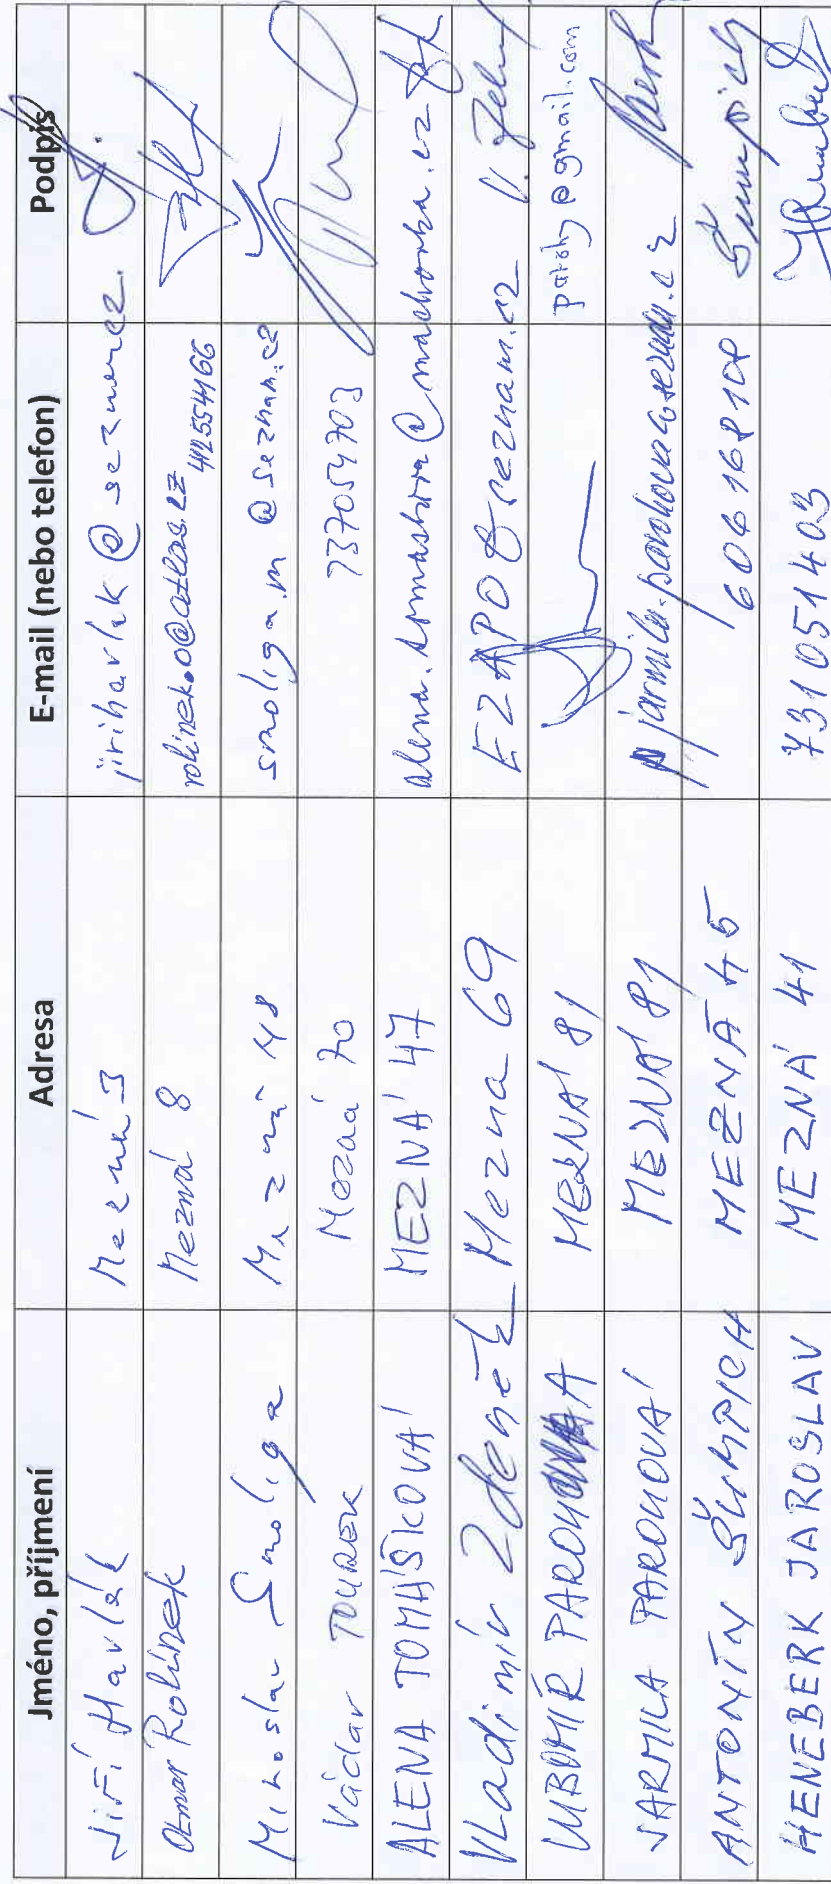 Jméno, příjmení Adresa E-mail (nebo telefon) Podpis
Jiří Havlák Mezná 3 jirihavlak@seznam.cz
Otmar Rolínek Mezná 8 rolinek.o@atlas.cz 412554166
Miroslav Smoliga Mezná 48 smoliga.m@seznam.cz
Václav TOUREK Mezná 70 737054703
ALENA TOMÁŠKOVÁ MEZNÁ 47
Vladimír Zdeněk Mezna 69 EZAPO@seznam.cz
LUBOMÍR MEZNÁ 81 @gmail.com
JARMILA PAROHOVÁ MEZNÁ 81 jarmila.parohova@seznam.cz
ANTONÍN ŠUMPICH MEZNÁ 45 606168108 Šumpich
HENEBERK JAROSLAV MEZNÁ 41 731051403